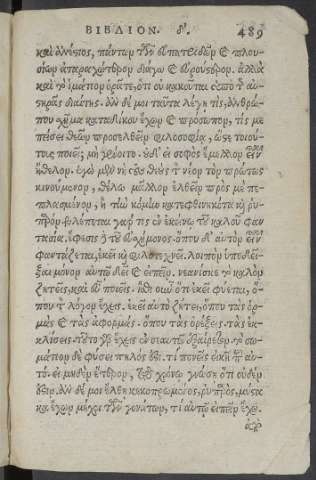 ΒΙΒΛΙΟΝ. δ'. 489
καὶ ἄλυπος, πάντων τῶν εὐπατειδῶν καὶ πλου-
σίων ἀταραχώτερον διάγω καὶ εὐρούστερον. ἀλλὰ
καὶ τὸ σωμάτιον ὁρᾶτε, ὅτι οὐ κακοῦται ὑπὸ τ' αὐ-
στηρᾶς διαίτης. ἂν δέ μοι ταῦτα λέγῃ τις, ἀνθρώ-
που σχῆμα καταδίκου ἔχων καὶ πρόσωπον, τίς με
πείσει θεῶν προσελθεῖν φιλοσοφίᾳ, ὥστε τοιού-
τους ποιεῖ; μὴ γένοιτο· οὐδ' εἰ σοφὸς ἔμελλον εἶναι
ἤθελον. ἐγὼ μὲν νὴ τοὺς θεοὺς τ νέον τὸν πρώτως
κινούμενον, θέλω μᾶλλον ἐλθεῖν πρός με πε-
πλασμένον, ἢ κατεφθινηκότα καὶ ῥυ-
παρόν. βλέπεται γάρ τις ἐν ἐκείνῳ τοῦ καλοῦ φαν
τασία. ἔφεσις δὲ τοῦ εὐσχήμονος. ὅπου δ' αὐτὸν εἶναι
φαντάζεται, ἐκεῖ καὶ φιλοτεχνεῖ. λοιπὸν ὑποδεῖ-
ξαι μόνον αὐτῷ δεῖ καὶ εἰπεῖν. νεανίσκε τὸ καλὸν
ζητεῖς, καὶ εὖ ποιεῖς. ἴσθι οὖν ὅτι ἐκεῖ φύεται, ὅ-
που τ λόγον ἔχεις. ἐκεῖ αὐτὸ ζήτει, ὅπου τὰς ὁρ-
μὰς καὶ τὰς ἀφορμάς· ὅπου τὰς ὀρέξεις· τὰς ἐκ-
κλίσεις· τοῦτο γὰρ ἔχεις ἐν σεαυτῷ ἐξαίρετον. τὸ σω-
μάτιον δὲ φύσει πηλός ἐστι. τί πονεῖς εἰκῇ περὶ αὐ-
τό. εἰ μηδὲν ἕτερον, τῷ χρόνῳ γνώσῃ ὅτι οὐδέν
ἐστιν. ἂν δέ μοι ἔλθῃ κεκοπρωμένος, ῥυπαρός, μύστα
κα ἔχων μέχρι τῶν γονάτων, τί αὐτῷ εἰπεῖν ἔχω.